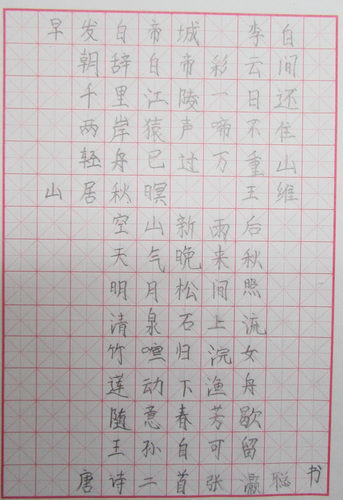 早发白帝城 李白
朝辞白帝彩云间
千里江陵一日还
两岸猿声啼不住
轻舟已过万重山
山居秋暝 王维
空山新雨后
天气晚来秋
明月松间照
清泉石上流
竹喧归浣女
莲动下渔舟
随意春芳歇
王孙自可留
唐诗二首张灏聪书